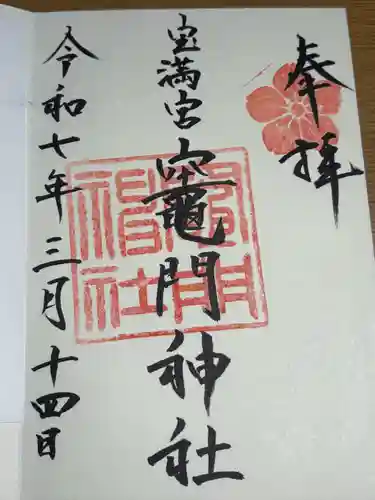 奉拝
宝満宮竈門神社
令和七年三月十四日